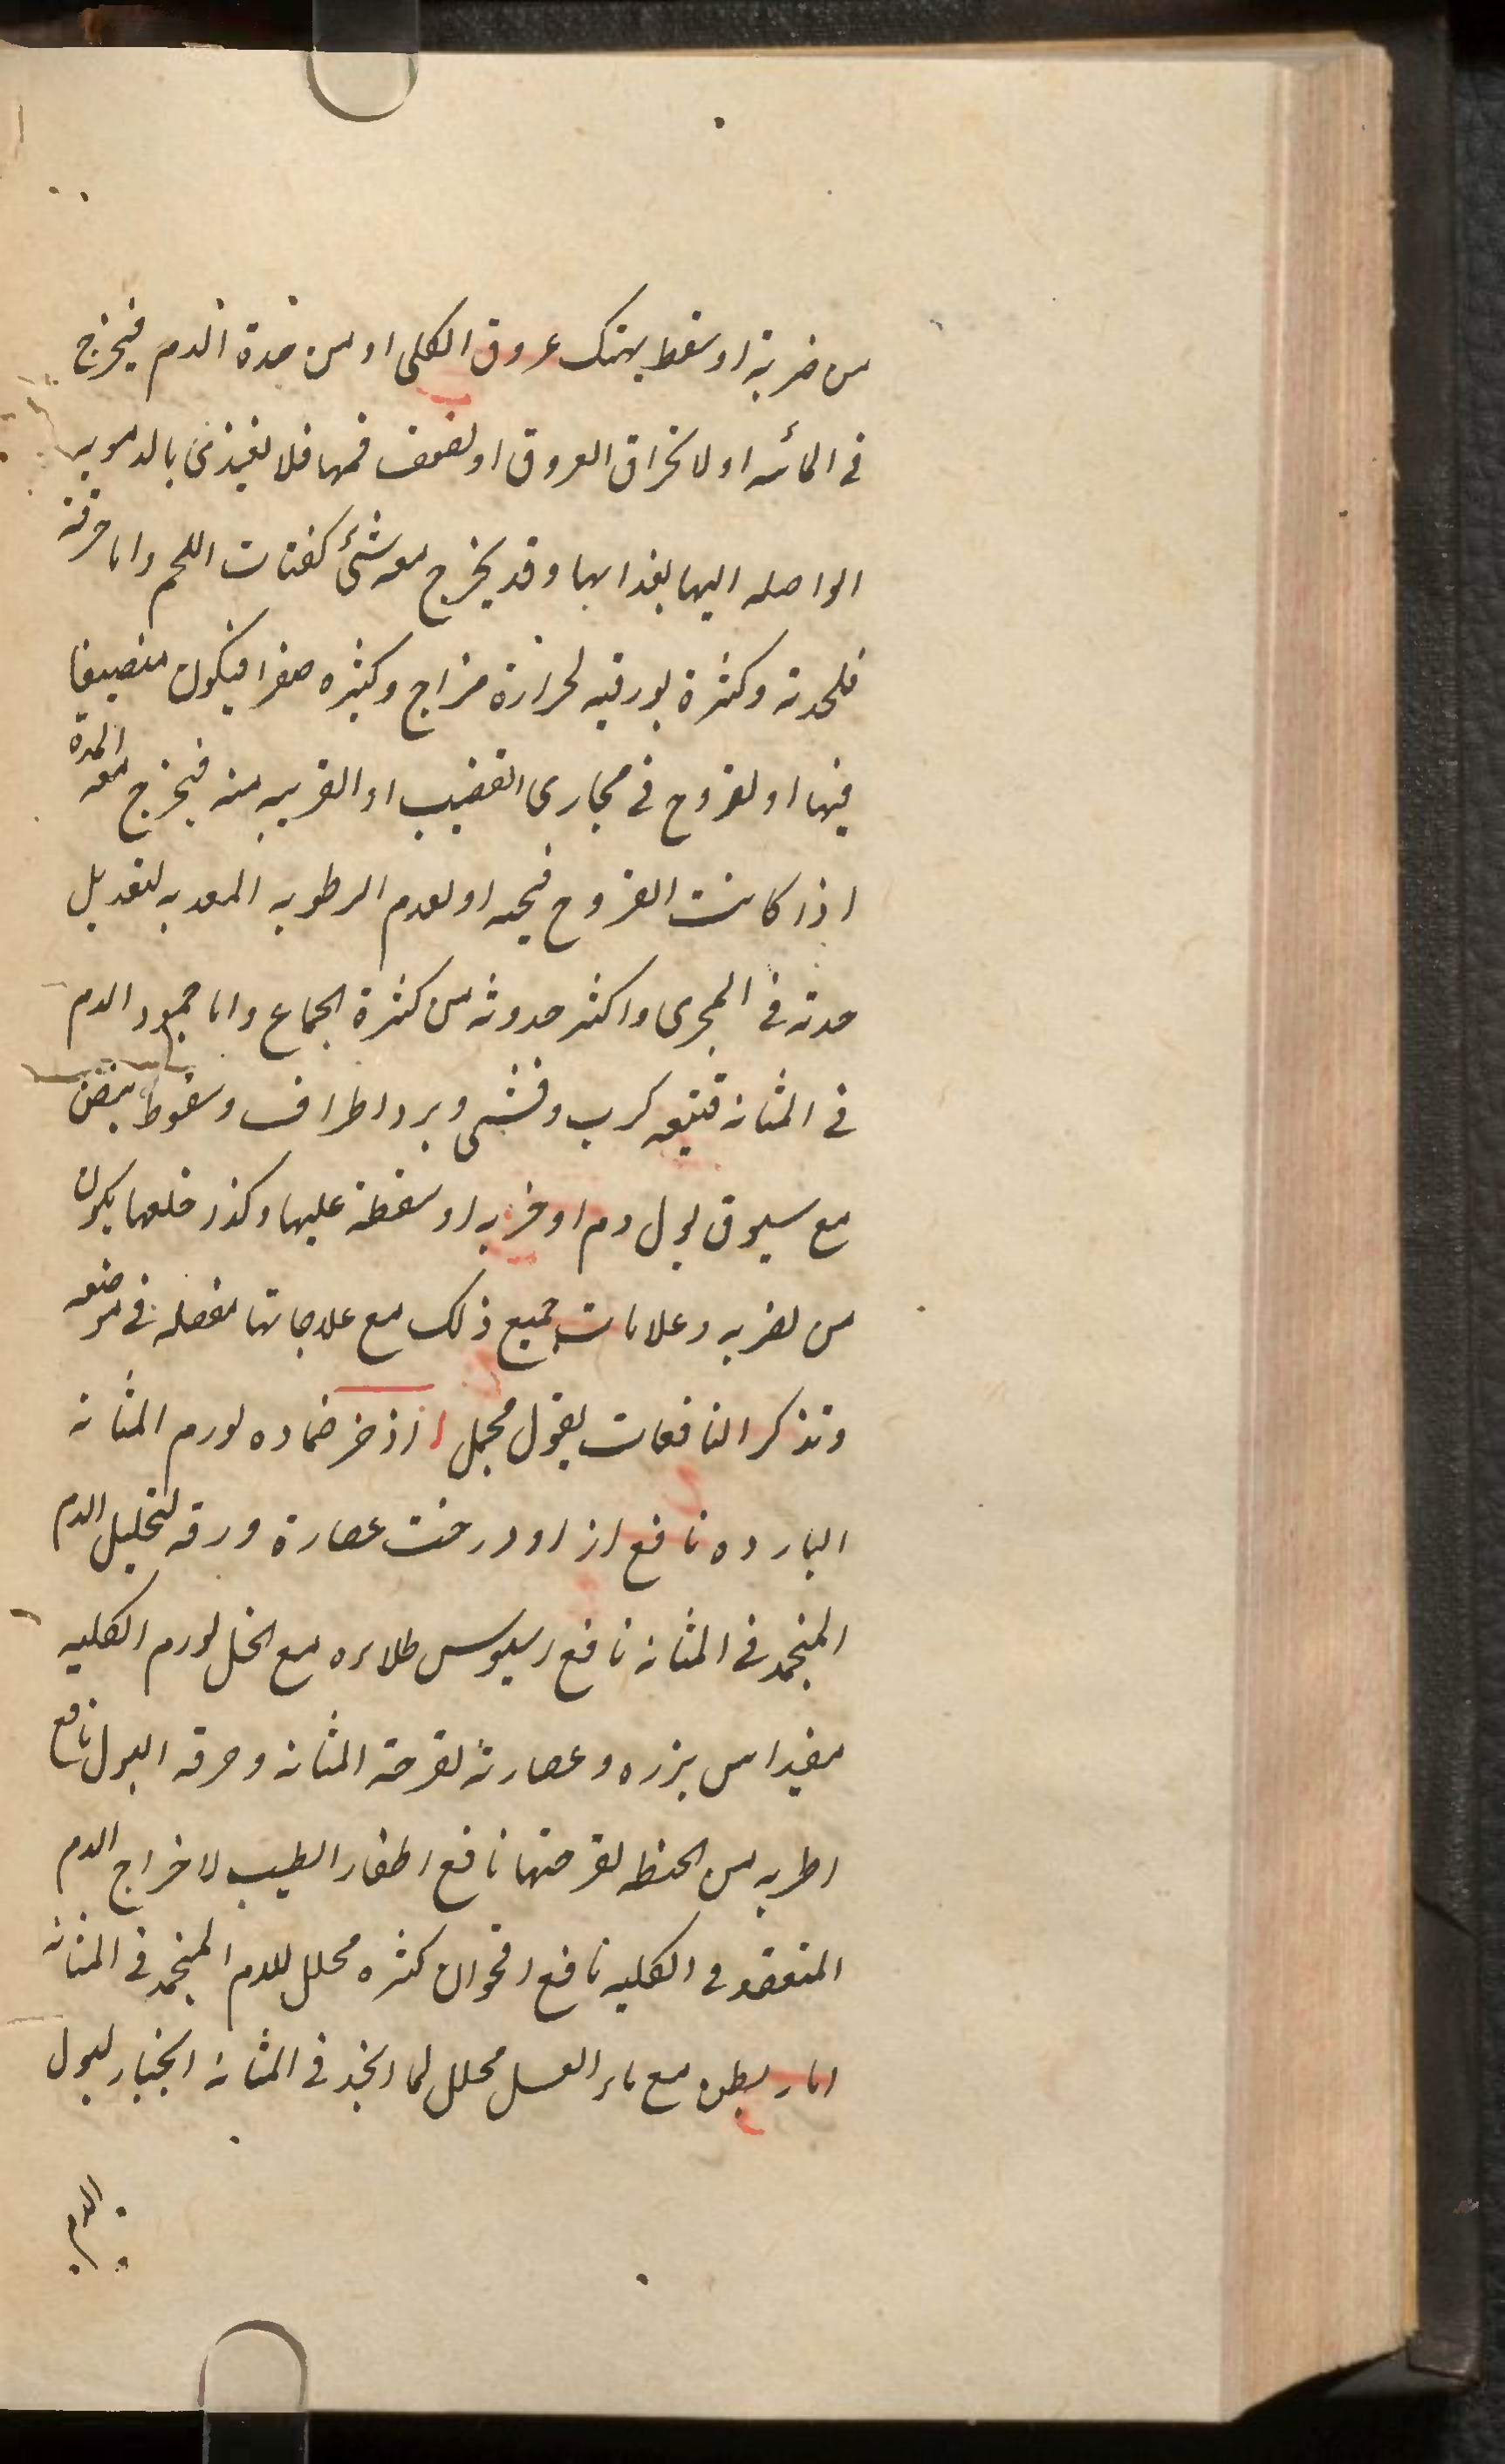 من ضربة او سقط يهتك عروق الكلى او من حدة الدم فيخرج
فى المائيه او لانخراق العروق او لضعف فمها فلا يغتذى بالدمويه
الواصله اليها بغذايها وقد يخرج معه شئ كفتات اللحم واما حرقته
فلحدته وكثرة بورقيه لحرارة مزاج وكثره صفرا فيكون
فيها او لقروح فى مجارى القضيب او القريبه منه فيخرج معه المدة
اذا كانت القروح فيحيه او لعدم الرطوبه المعدبه لتعديل
حدته فى المجرى واكثر حدوثه من كثرة الجماع واما جمود الدم
فى المثانه فتتبعه كرب وغشى وبرد اطراف وسقوط نبض
مع سبوق بول دم او ضربه او سقطة عليها وكذر خلعها يكون
من لضربه وعلامات جميع ذلك مع علاجاتها مفصله فى موضعه
ونذكر النافعات بقول مجمل ا اذخر ضماده لورم المثانه
البارده نافع ازاودرخت عصارة ورقه لتحليل الدم
المنجمد فى المثانه نافع اسيوس طلاءه مع الخل لورم الكليه
مفيد امس بزره وعصارته لقرحة المثانه وحرقه البول نافع
اطريه من الحنطه لقرحتها نافع اظفار الطيب لاخراج الدم
المتعقد فى الكليه نافع اقحوان كثره محلل للدم المنجمد فى المثانه
امار يطون مع ماء العسل محلل لما انجمد فى المثانه انجبار لبول
الدم